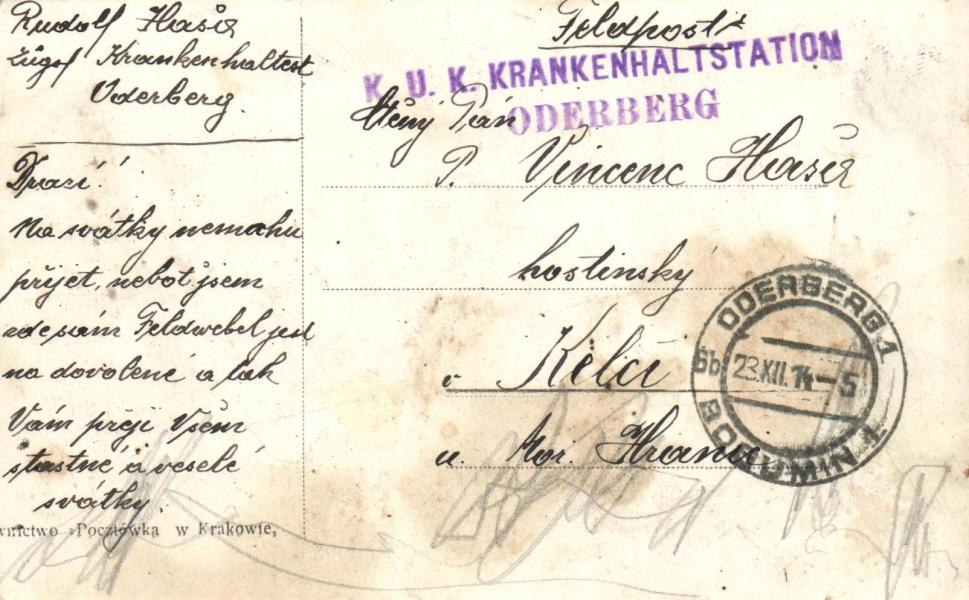 Rudolf Haša
Zugsf Krankenhaltest
Oderberg.
Drazí!
Na svátky nemohu
přijet, neboť jsem
zde sám Feldwebel jest
na dovolené a tak
Vám přeji Všem
štastné a veselé
svátky.
wnictwo »Pocztówka w Krakowie,
Feldpost
K. U. K. KRANKENHALTSTATION
ODERBERG
Ctěný Pán
P. Vincenc Haša
hostinský
v Kelči
u Mor. Hranic
ODERBERG 1
6b 23.XII.14-5
BOHUMÍN 1